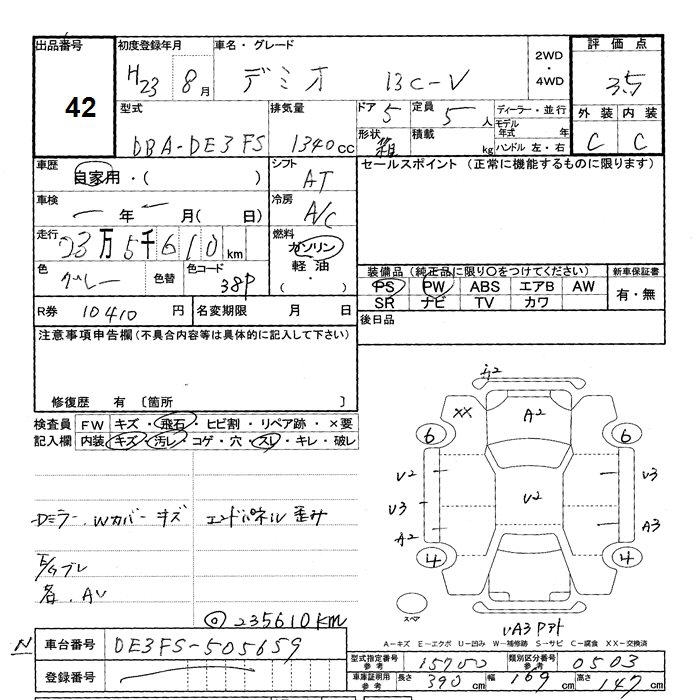 出品番号 初度登録年月 車名・グレード 2WD・4WD 評価点
42 H23 8月 デミオ 13C-V 3.5
型式 排気量 ドア 5 定員 5人 ディーラー・並行 外装 内装
DBA-DE3FS 1340cc 形状 箱 積載 kg モデル年式 年 ハンドル 左・右 C C
車歴 自家用・( ) シフト AT セールスポイント (正常に機能するものに限ります)
車検 一年一月( 日) 冷房 A/C
走行 23万5千610km 燃料 ガソリン 軽油・( )
色 グレー 色替 色コード 38P 装備品 (純正品に限り○をつけてください) 新車保証書
PS PW ABS エアB AW 有・無
SR ナビ TV カワ
R券 10410円 名変期限 月 日 後日品
注意事項申告欄(不具合内容等は具体的に記入して下さい)
修復歴 有 〔箇所 〕
検査員 FW キズ・飛石・ヒビ割・リペア跡・×要
記入欄 内装 キズ・汚レ・コゲ・穴・スレ・キレ・破レ
XX A2
6 6
U2 U3
U2
U3
A2 A3
4 4
Dミラー、Wカバー キズ エンドパネル歪み
E/Gブレ
各、AU
スペア
◎235610km UA3アト
A－キズ E－エクボ U－凹み W－補修跡 S－サビ C－腐食 XX－交換済
N 車台番号 DE3FS-505659
型式指定番号 参考 15700 類別区分番号 参考 0503
登録番号
車庫証明用 参考 長さ 390cm 幅 169cm 高さ 147cm